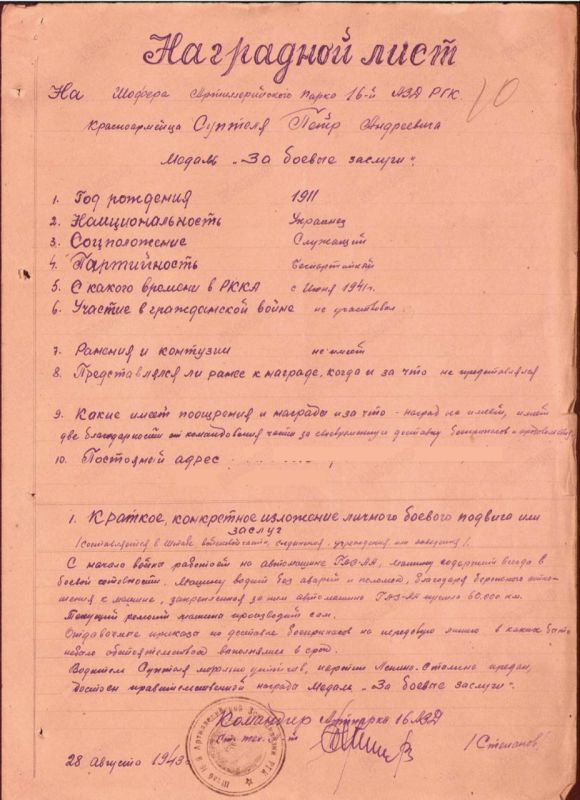 Наградной лист
На шофера Артиллерийского парка 16-й АЗД РГК. 10
Красноармейца Суптеля Петр Андреевича
Медаль „За боевые заслуги".
1. Год рождения 1911
2. Национальность Украинец
3. Соцположение Служащий
4. Партийность беспартийный
5. С какого времени в РККА с Июня 1941 г.
6. Участие в гражданской войне не участвовал
7. Ранения и контузии не имеет
8. Представлялся ли ранее к награде, когда и за что не представлялся
9. Какие имеет поощрения и награды и за что - наград не имеет, имеет
две благодарности от командования части за своевременную доставку боеприпасов и
10. Постояной адрес
1. Краткое, конкретное изложение личного боевого подвига или
заслуг
/составляется в штабе войсковой части, соединения, учреждения или заведения/.
С начала войны работает на автомашине ГАЗ-АА, машину содержит всегда в
боевой готовности. Машину водит без аварий и поломок, благодаря бережного отно-
шения к машине, закрепленная за ним автомашина ГАЗ-АА прошла 60.000 км.
Текущий ремонт машины производит сам.
Отдаваемые приказы по доставке боеприпасов на передовую линию в каких бы то
небыло обстоятельствах выполнялись в срок.
Водитель Суптеля морально устойчив, партии Ленина-Сталина предан,
достоен правительственной награды Медаль „За боевые заслуги".
Командир Артпарка 16 АЗД
ст. тех. л-т /Степанов/
28 августа 1943